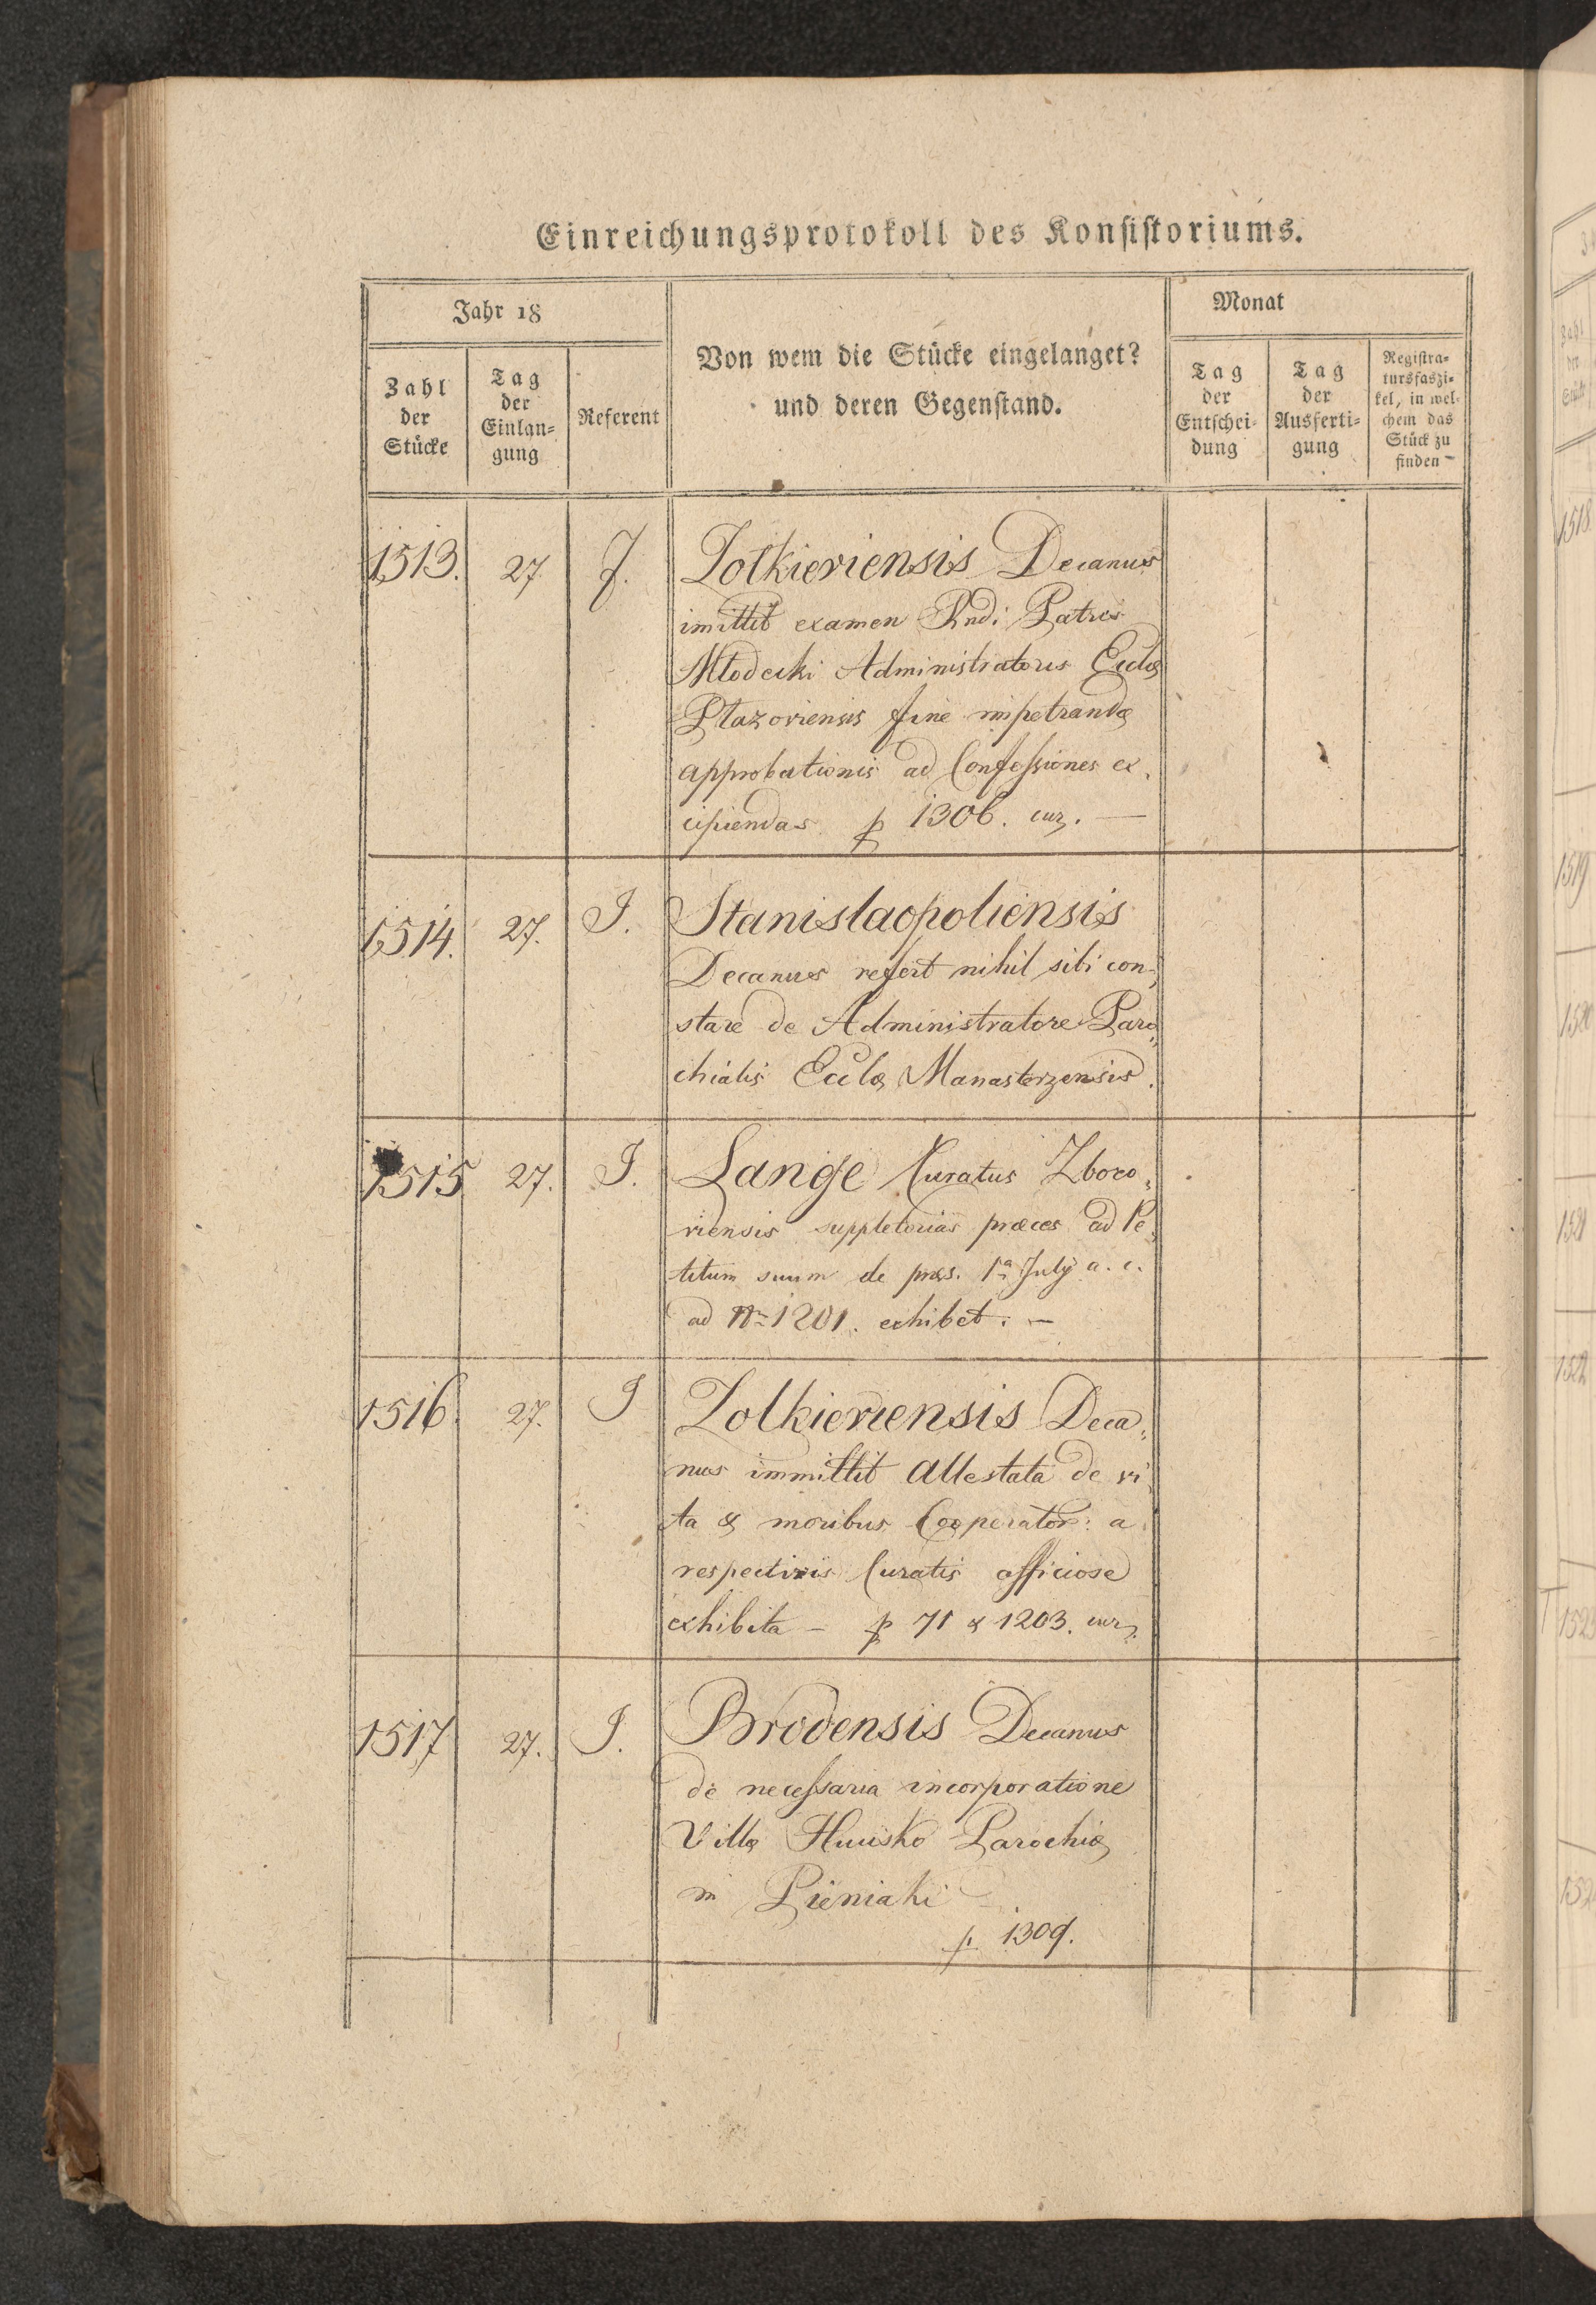 Einreichungsprotokoll des Konsistoriums.
Jahr 18
Monat
Zahl
der
Stücke
Tag
der
Einlan=
gung
Referent
Von wem die Stücke eingelanget?
und deren Gegenstand.
Tag
der
Entschei=
dung
Tag
der
Ausferti=
gung
Registra=
tursfaszi=
kel, in wel=
chem das
Stück zu
finden
1513. 27 J. Zolkieviensis Decanus
imittit examen Rndi Patris
Młodecki Administratoris Ecclæ
Płazoviensis fine impetrandæ
approbationis ad Confessiones ex,
cipiendas p 1306. cur. —
1514. 27. J. Stanislaopoliensis
Decanus refert nihil sibi con,
stare de Administratore Paro,,
chialis Eccle Manasterzensis.
1515 27. J. Lange Curatus Zboro,
viensis suppletorias preces ad Pe,
titum suum de præs. 1a July a. c.
ad Nr 1201. exhibet. —
1516. 27. J Zolkieviensis Deca,
nus immittit Attestata de vi,
ta & moribus Cooperator: a
respectivis Curatis officiose
exhibita — p 71 & 1203. cur.
1517 27. J. Brodensis Decanus
de necessaria incorporatione
Villæ Huisko Parochiæ
in Pieniaki
p. 1309.
1518
1519
1520
1521
1522
1523